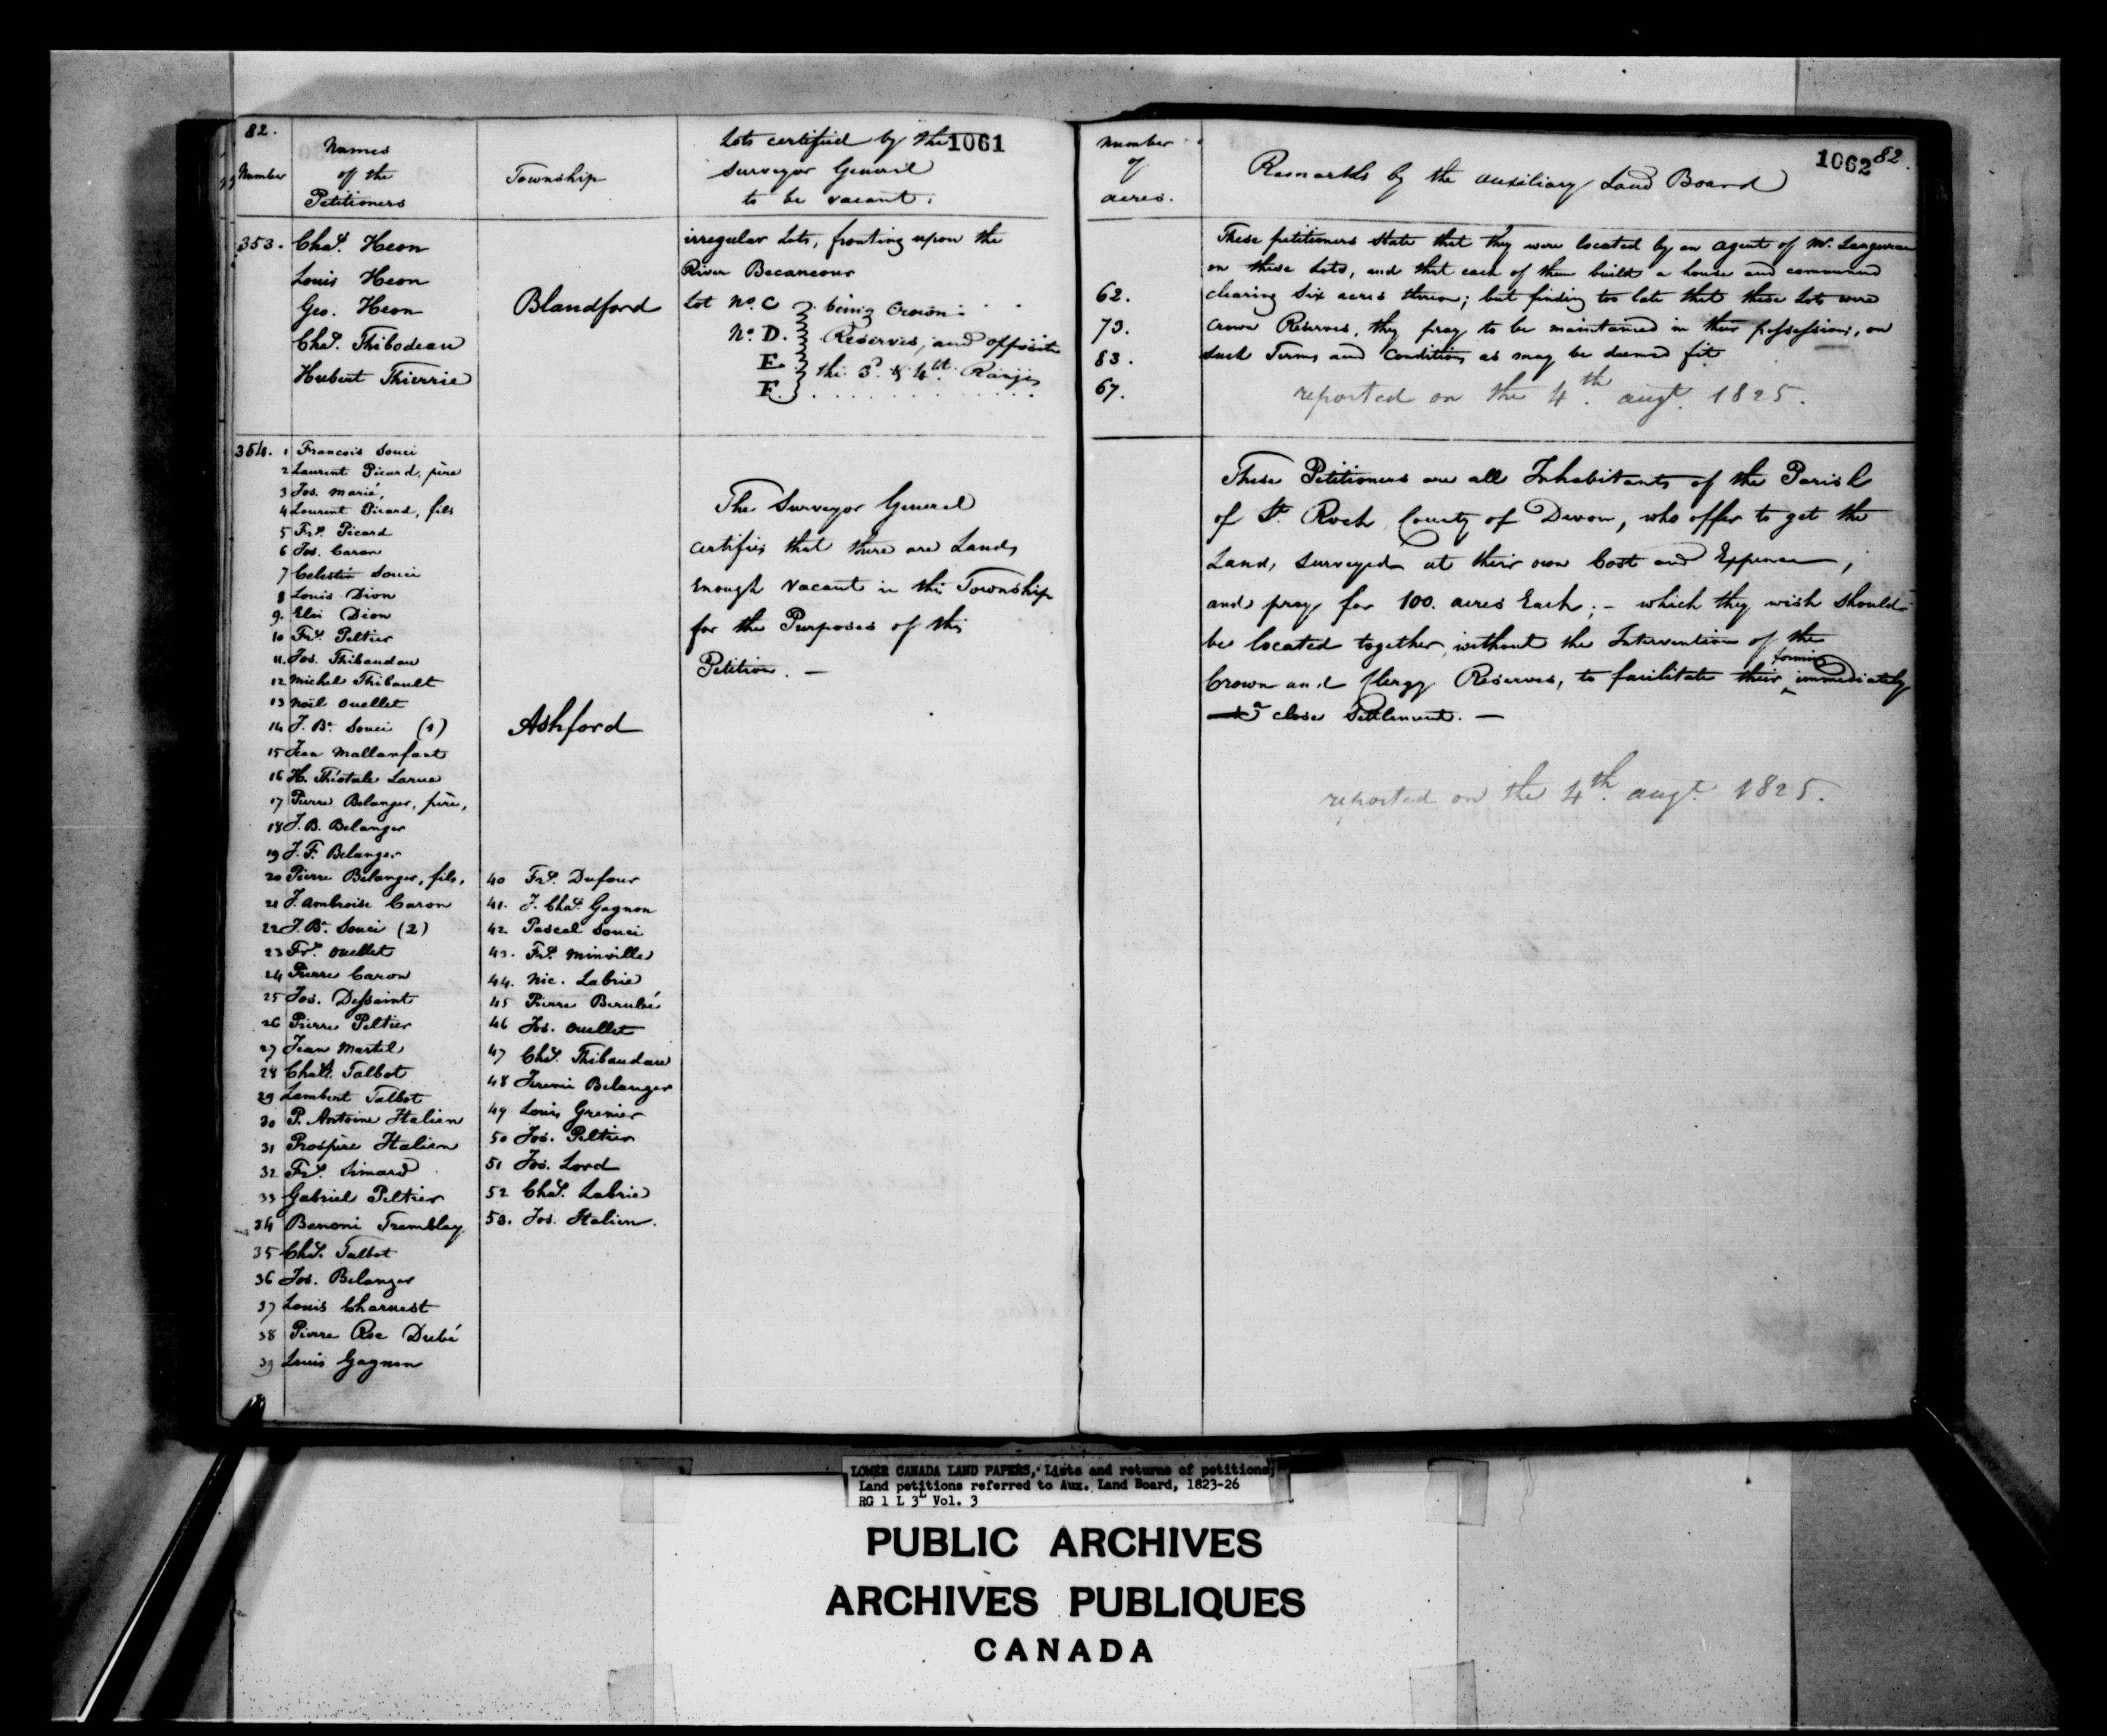 82.
1061
Number
Names
of the
Petitioners
Township
Lots certified by the
Surveyor General
to be vacant.
353. Chas. Heon
Louis Heon
Geo. Heon
Chas. Thibodeau
Hubert Thierrie
Blandford
irregular Lots, fronting upon the
River Becancour
Lot No. C } being Crown
No. D. } Reserves, and opposite
E } the 3d. & 4th. Ranges
F. }
354. 1 Francois Souci
2 Laurent Picard, père
3 Jos. Marié,
4 Laurent Picard, fils
5 Frs. Picard
6 Jos. Caron
7 Celestin Souci
8 Louis Dion
9. Eloi Dion
10 Frs. Peltier
11. Jos. Thibaudau
12 Michel Thibault
13 Noël Ouellet
14 J. Bte. Souci (1)
15 Jean Mallanfant
16 H. Théotule Larue
17 Pierre Belanger, père,
18 J. B. Belanger
19 J. F. Belanger
20 Pierre Belanger, fils,
21 J. Ambroise Caron
22 J. Bte. Souci (2)
23 Frs. Ouellet
24 Pierre Caron
25 Jos. Dessaint
26 Pierre Peltier
27 Jean Martel
28 Chals. Talbot
29 Lambert Talbot
30 P. Antoine Italien
31 Prospère Italien
32 Frs. Simard
33 Gabriel Peltier
34 Benoni Tremblay
35 Chs. Talbot
36 Jos. Belanger
37 Louis Charuest
38 Pierre Roc Dubé
39 Louis Gagnon
Ashford
40 Frs. Dufour
41. J. Chas. Gagnon
42. Pascal Souci
43. Frs. Minville
44. Nic. Labrie
45 Pierre Berubé
46 Jos. Ouellet
47 Chs. Thibaudau
48 Jeremi Belanger
49 Louis Grenier
50 Jos. Peltier
51 Jos. Lord
52 Chas. Labrie
53. Jos. Italien.
The Surveyor General
certifies that there are Lands
Enough vacant in this Township
for the Purposes of this
Petition. —
Number
of
acres.
Remarks by the auxiliary Land Board
1062 82.
62.
73.
83.
67.
These petitioners state that they were located by an agent of Mr. Langevin
on these Lots, and that each of them build a house and commenced
clearing six acres thereon; but finding too late that these Lots were
Crown Reserves, they pray to be maintained in their possessions, on
such Terms and Conditions as may be deemed fit
reported on the 4th. augt. 1825.
These Petitioners are all Inhabitants of the Parish
of St. Roch County of Devon, who offer to get the
Land, surveyed at their own Cost and Expence,
and pray for 100. acres Each; – which they wish should
be located together, without the Intervention of the
Crown and Clergy Reserves, to facilitate their forming immediately
a close Settlement. —
reported on the 4th. augt. 1825.
LOWER CANADA LAND PAPERS, Lists and returns of petitions;
Land petitions referred to Aux. Land Board, 1823-26
RG 1 L 3L Vol. 3
PUBLIC ARCHIVES
ARCHIVES PUBLIQUES
CANADA